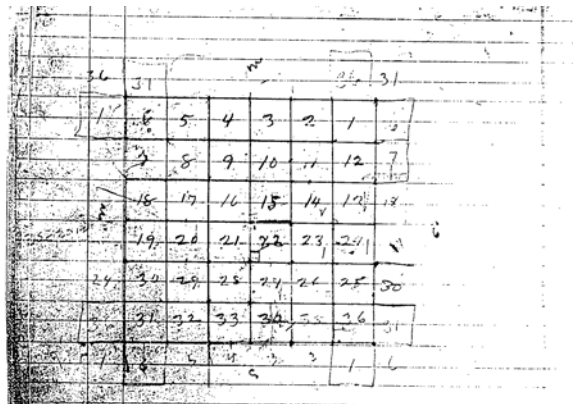 36 31 36 31
1 6 5 4 3 2 1 6
7 8 9 10 11 12 7
18 17 16 15 14 13 18
19 20 21 22 23 24
24 30 29 28 27 26 25 30
31 32 33 34 35 36 31
1 6 5 4 3 3 1 6
S